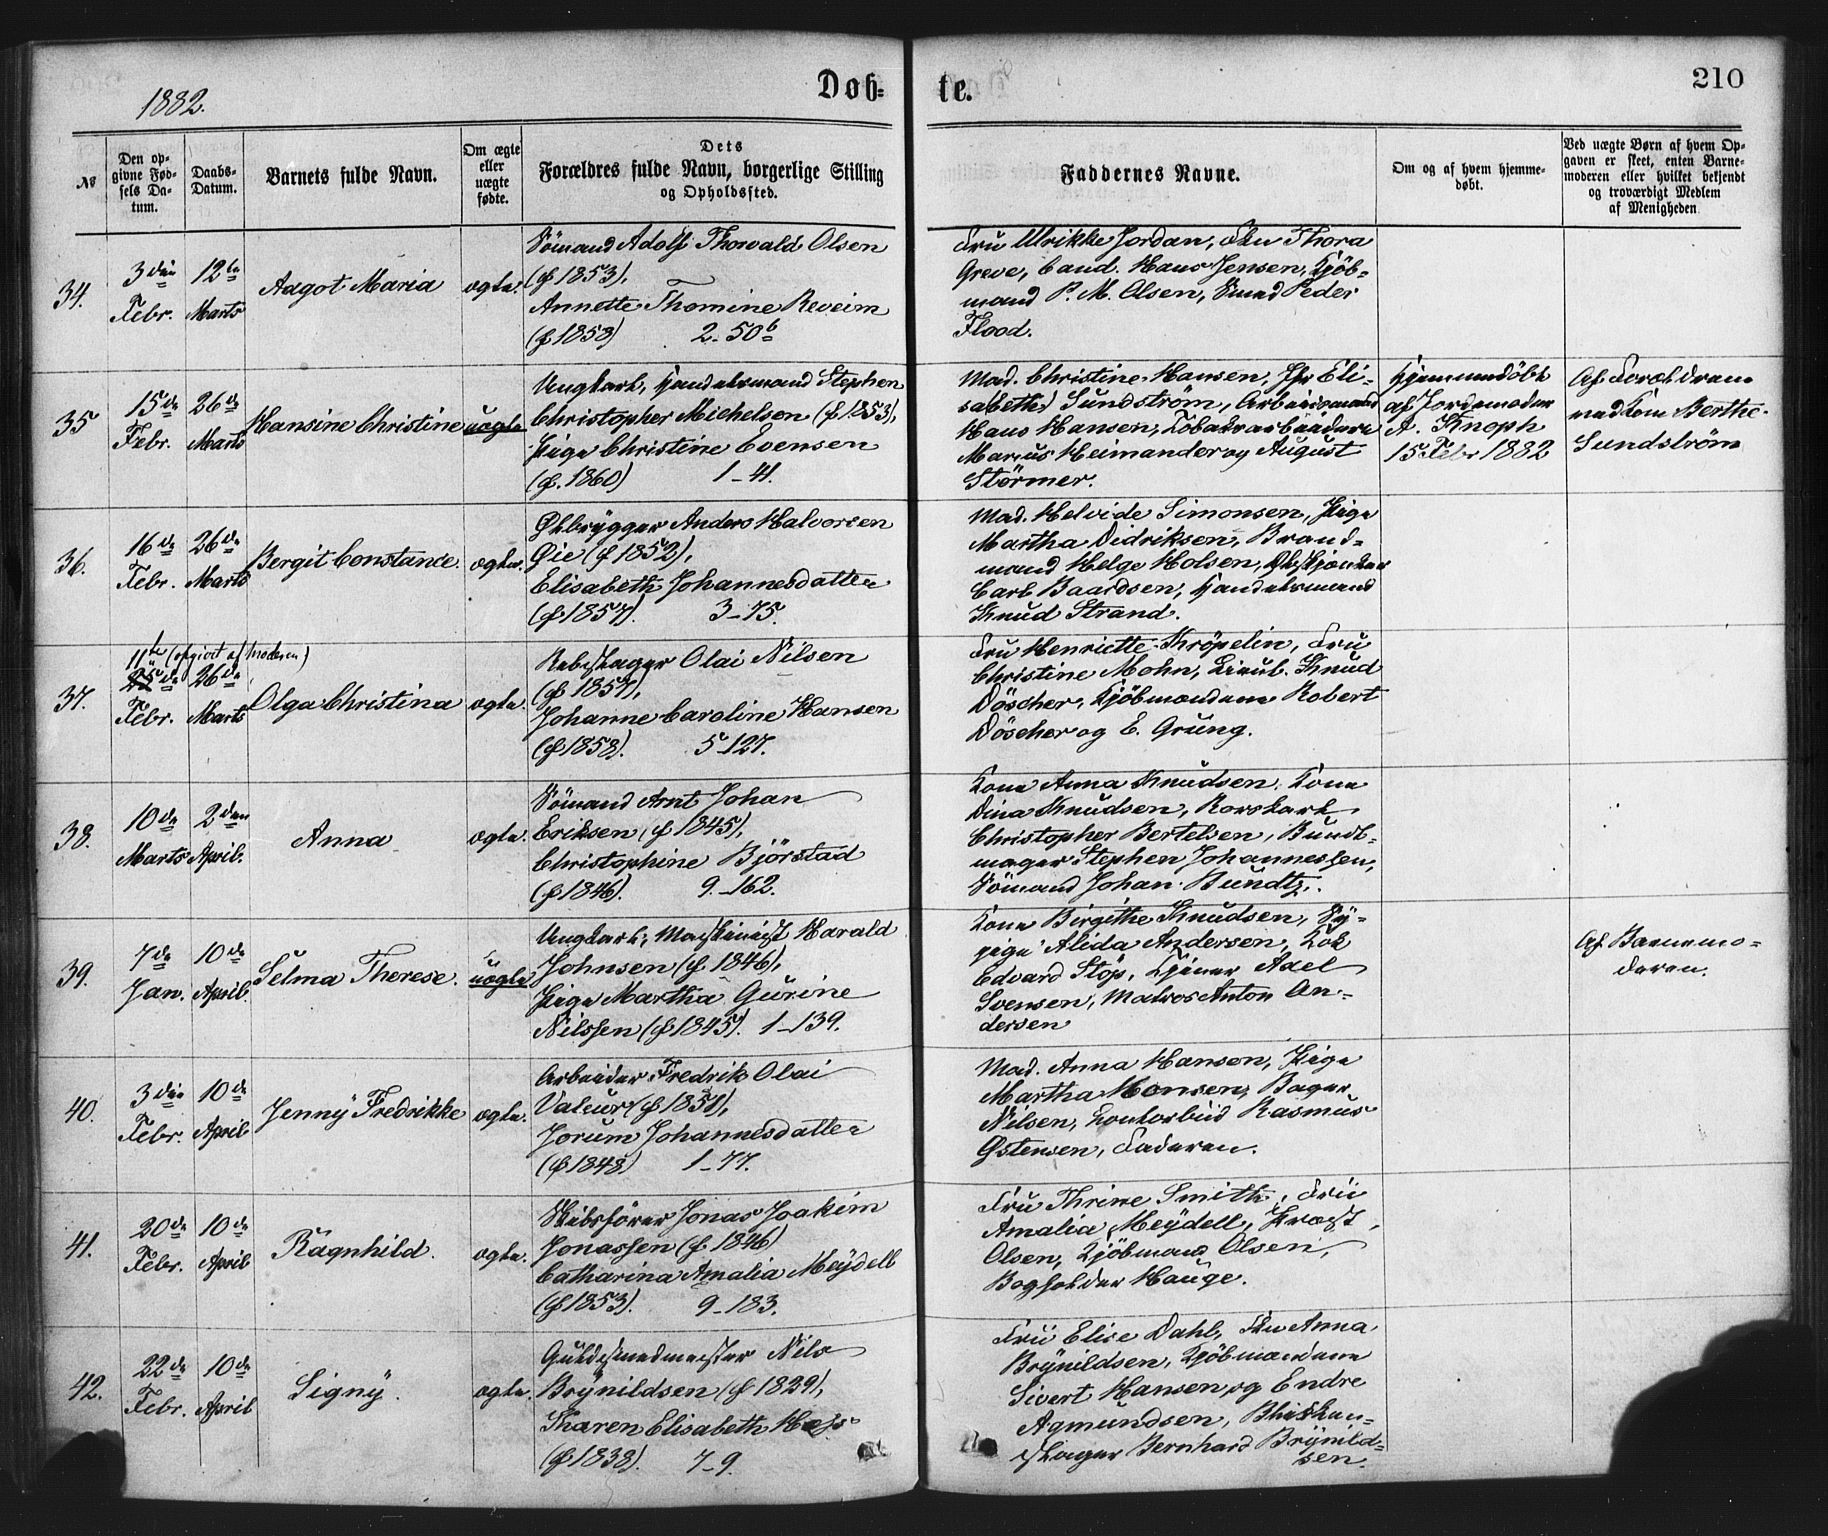 1882.
Døb-
te.
210
№
Den op-
givne Fød-
sels Da-
tum.
Daabs-
Datum.
Barnets fulde Navn.
Om ægte
eller
uægte
fødte.
Dets
Forældres fulde Navn, borgerlige Stilling
og Opholdssted.
Faddernes Navne.
Om og af hvem hjemme-
døbt.
Ved uægte Børn af hvem Op-
gaven er skeet, enten Barne-
moderen eller hvilket bekjendt
og troværdigt Medlem
af Menigheden
34.
3die
Febr.
12te
Marts
Aagot Maria
ægte.
Sömand Adolf Thorvald Olsen
(f 1853),
Annette Thomine Reveim
(f 1853) 2-50b
Fru Ulrikke Jordan, Fru Thora
Greve, Cand. Hans Jensen, Kjöb-
mand P. M. Olsen, Smed Peder
Flood.
35
15de
Febr.
26de
Marts
Hansine Christine
uægte
Ungkarl, Handelsmand Stephen
Christopher Michelsen (f 1853),
Pige Christine Evensen
(f. 1860) 1-41.
Mad. Christine Hansen, Jfr Eli-
sabeth Sundström, Arbeidsmand
Hans Hansen, Tobaksarbeidere
Marius Heimander og August
Störmer.
Hjemmedöbt
af Jordemoder
A. Knoph
15 Febr 1882
Af Forældrene
ved Kone Berthe
Sundström
36.
16de
Febr.
26de
Marts
Bergit Constance.
ægte.
Ølbrygger Anders Halvorsen
Øie (f 1852),
Elisabeth Johannesdatter
(f 1857). 3-75.
Mad. Helvide Simonsen, Pige
Martha Didriksen, Brand-
mand Helge Holsen,
Carl Baardsen, Handelsmand
Knud Strand.
37.
11te (opgivet af Moderen)
25de
Febr.
26de
Marts
Olga Christina
ægte.
Rebslager Olai Nilsen
(f 1857),
Johanne Caroline Hansen
(f 1858). 5-127.
Fru Henriette Kröpelin, Fru
Christine Mohn, Lieut. Knud
Döscher, Kjöbmændene Robert
Döscher og E. Grung.
38.
10de
Marts
2den
April.
Anna
ægte.
Sömand Arnt Johan
Eriksen (f 1845),
Christophine Björstad
(f 1846). 9-162.
Kone Anna Knudsen, Kone
Dina Knudsen, Rorskarl
Christopher Bertelsen, Bundt-
mager Stephen Johannessen,
Sömand Johan Bundtz.
39.
7de
Jan.
10de
April
Selma Therese.
uægte
Ungkarl, Maskinist Harald
Johnsen (f. 1846),
Pige Martha Gurine
Nilssen (f 1845). 1-139.
Kone Birgithe Knudsen, Sy-
pige Alida Andersen, Kok
Edvard Stöp, Tjener Axel
Svensen, Matros Anton An-
dersen
Af Barnemo-
deren.
40.
3die
Febr.
10de
April
Jenny Fredrikke
ægte.
Arbeider Fredrik Olai
Valeur (f 1851),
Jorum Johannesdatter
(f 1848) 1-77.
Mad. Anna Hansen, Pige
Martha Monsen, Bager
Nilsen, Contorbud Rasmus
Østensen, Faderen.
41.
20de
Febr.
10de
April
Ragnhild.
ægte.
Skibsförer Jonas Joakim
Jonassen (f. 1846)
Catharina Amalia Meydell
(f 1853). 9-183.
Fru Thrine Smith, Fru
Amalia Meydell, Provst
Olsen, Kjöbmand Olsen,
Bogholder Hauge.
42.
22de
Febr.
10de
April
Signy.
ægte.
Guldsmedmester Nils
Brynildsen (f 1829),
Karen Elisabeth
(f 1838). 7-9.
Fru Elise Dahl, Fru Anna
Brynildsen, Kjöbmændene
Sivert Hansen og Endre
Agmundsen, Blikken-
slager Bernhard Brynild-
sen.